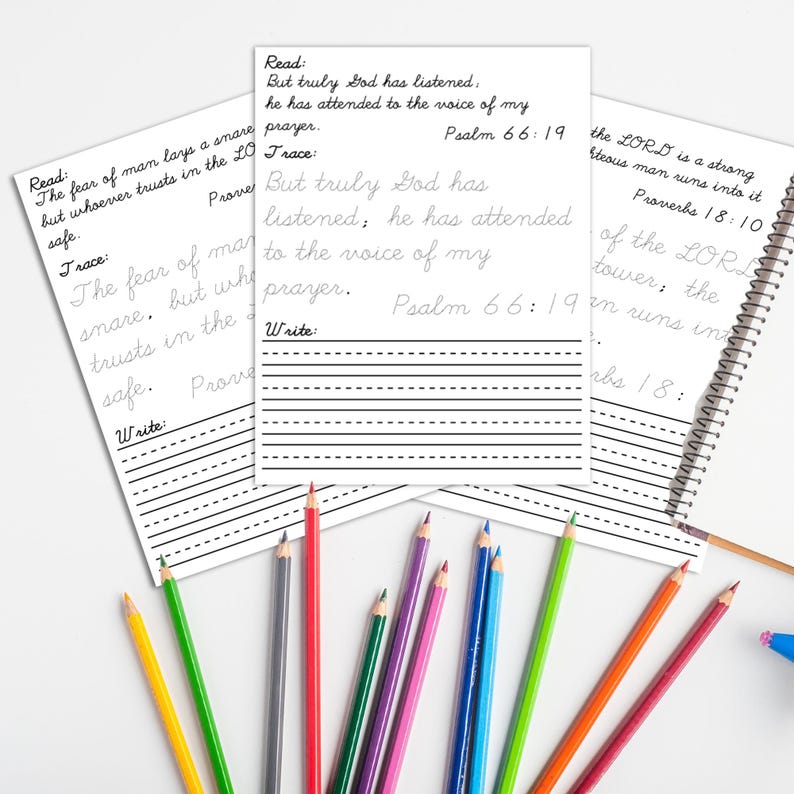 Read:
The fear of man lays a snare
but whoever trusts in the LO
safe.
Prover
Trace:
The fear of man
snare, but who
trusts in the L
safe. Prove
Write:
Read:
But truly God has listened;
he has attended to the voice of my
prayer.
Psalm 66:19
Trace:
But truly God has
listened; he has attended
to the voice of my
prayer.
Psalm 66:19
Write:
the LORD is a strong
hteous man runs into it
Proverbs 18:10
of the LORD
tower; the
an runs int
rbs 18: